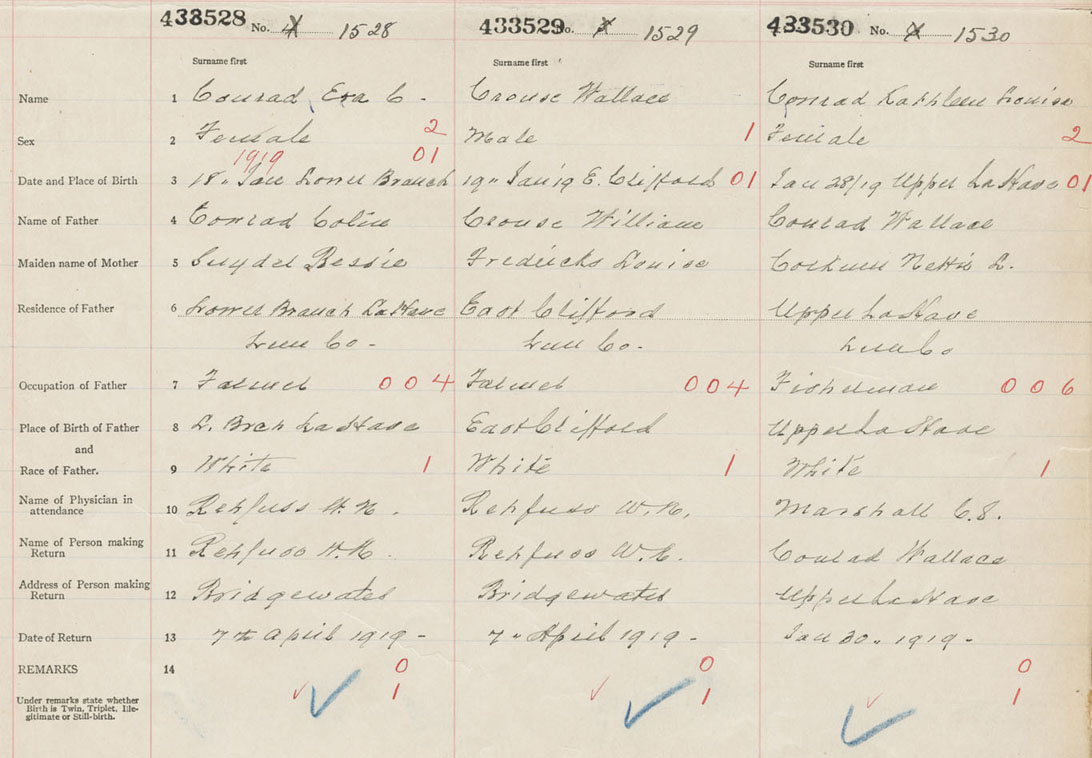 433528 No. 1528 433529 No. 1529 433530 No. 1530
Surname first Surname first Surname first
Name 1 Conrad, Eva C. Crouse Wallace Conrad Kathleen Louise
Sex 2 Female 2 Male 1 Female 2
1919 01
Date and Place of Birth 3 18" Jan Lower Branch 19" Jan 19 E. Clifford 01 Jan 28/19 Upper LaHave 01
Name of Father 4 Conrad Colin Crouse William Conrad Wallace
Maiden name of Mother 5 Snyder Bessie Fredricks Louise Corkum Nettie L.
Residence of Father 6 Lower Branch LaHave East Clifford Upper LaHave
Lun Co - Lun Co. Lun Co
Occupation of Father 7 Farmer 004 Farmer 004 Fisherman 006
Place of Birth of Father 8 L. Brch LaHave East Clifford Upper LaHave
and
Race of Father. 9 White 1 White 1 White 1
Name of Physician in
attendance 10 Rehfuss W. N. Rehfuss W. N. Marshall C. S.
Name of Person making
Return 11 Rehfuss W. N. Rehfuss W. N. Conrad Wallace
Address of Person making
Return 12 Bridgewater Bridgewater Upper LaHave
Date of Return 13 7th April 1919 - 7" April 1919 - Jan 30" 1919 -
REMARKS 14 0 0 0
Under remarks state whether
Birth is Twin, Triplet, Ille-
gitimate or Still-birth. 1 1 1